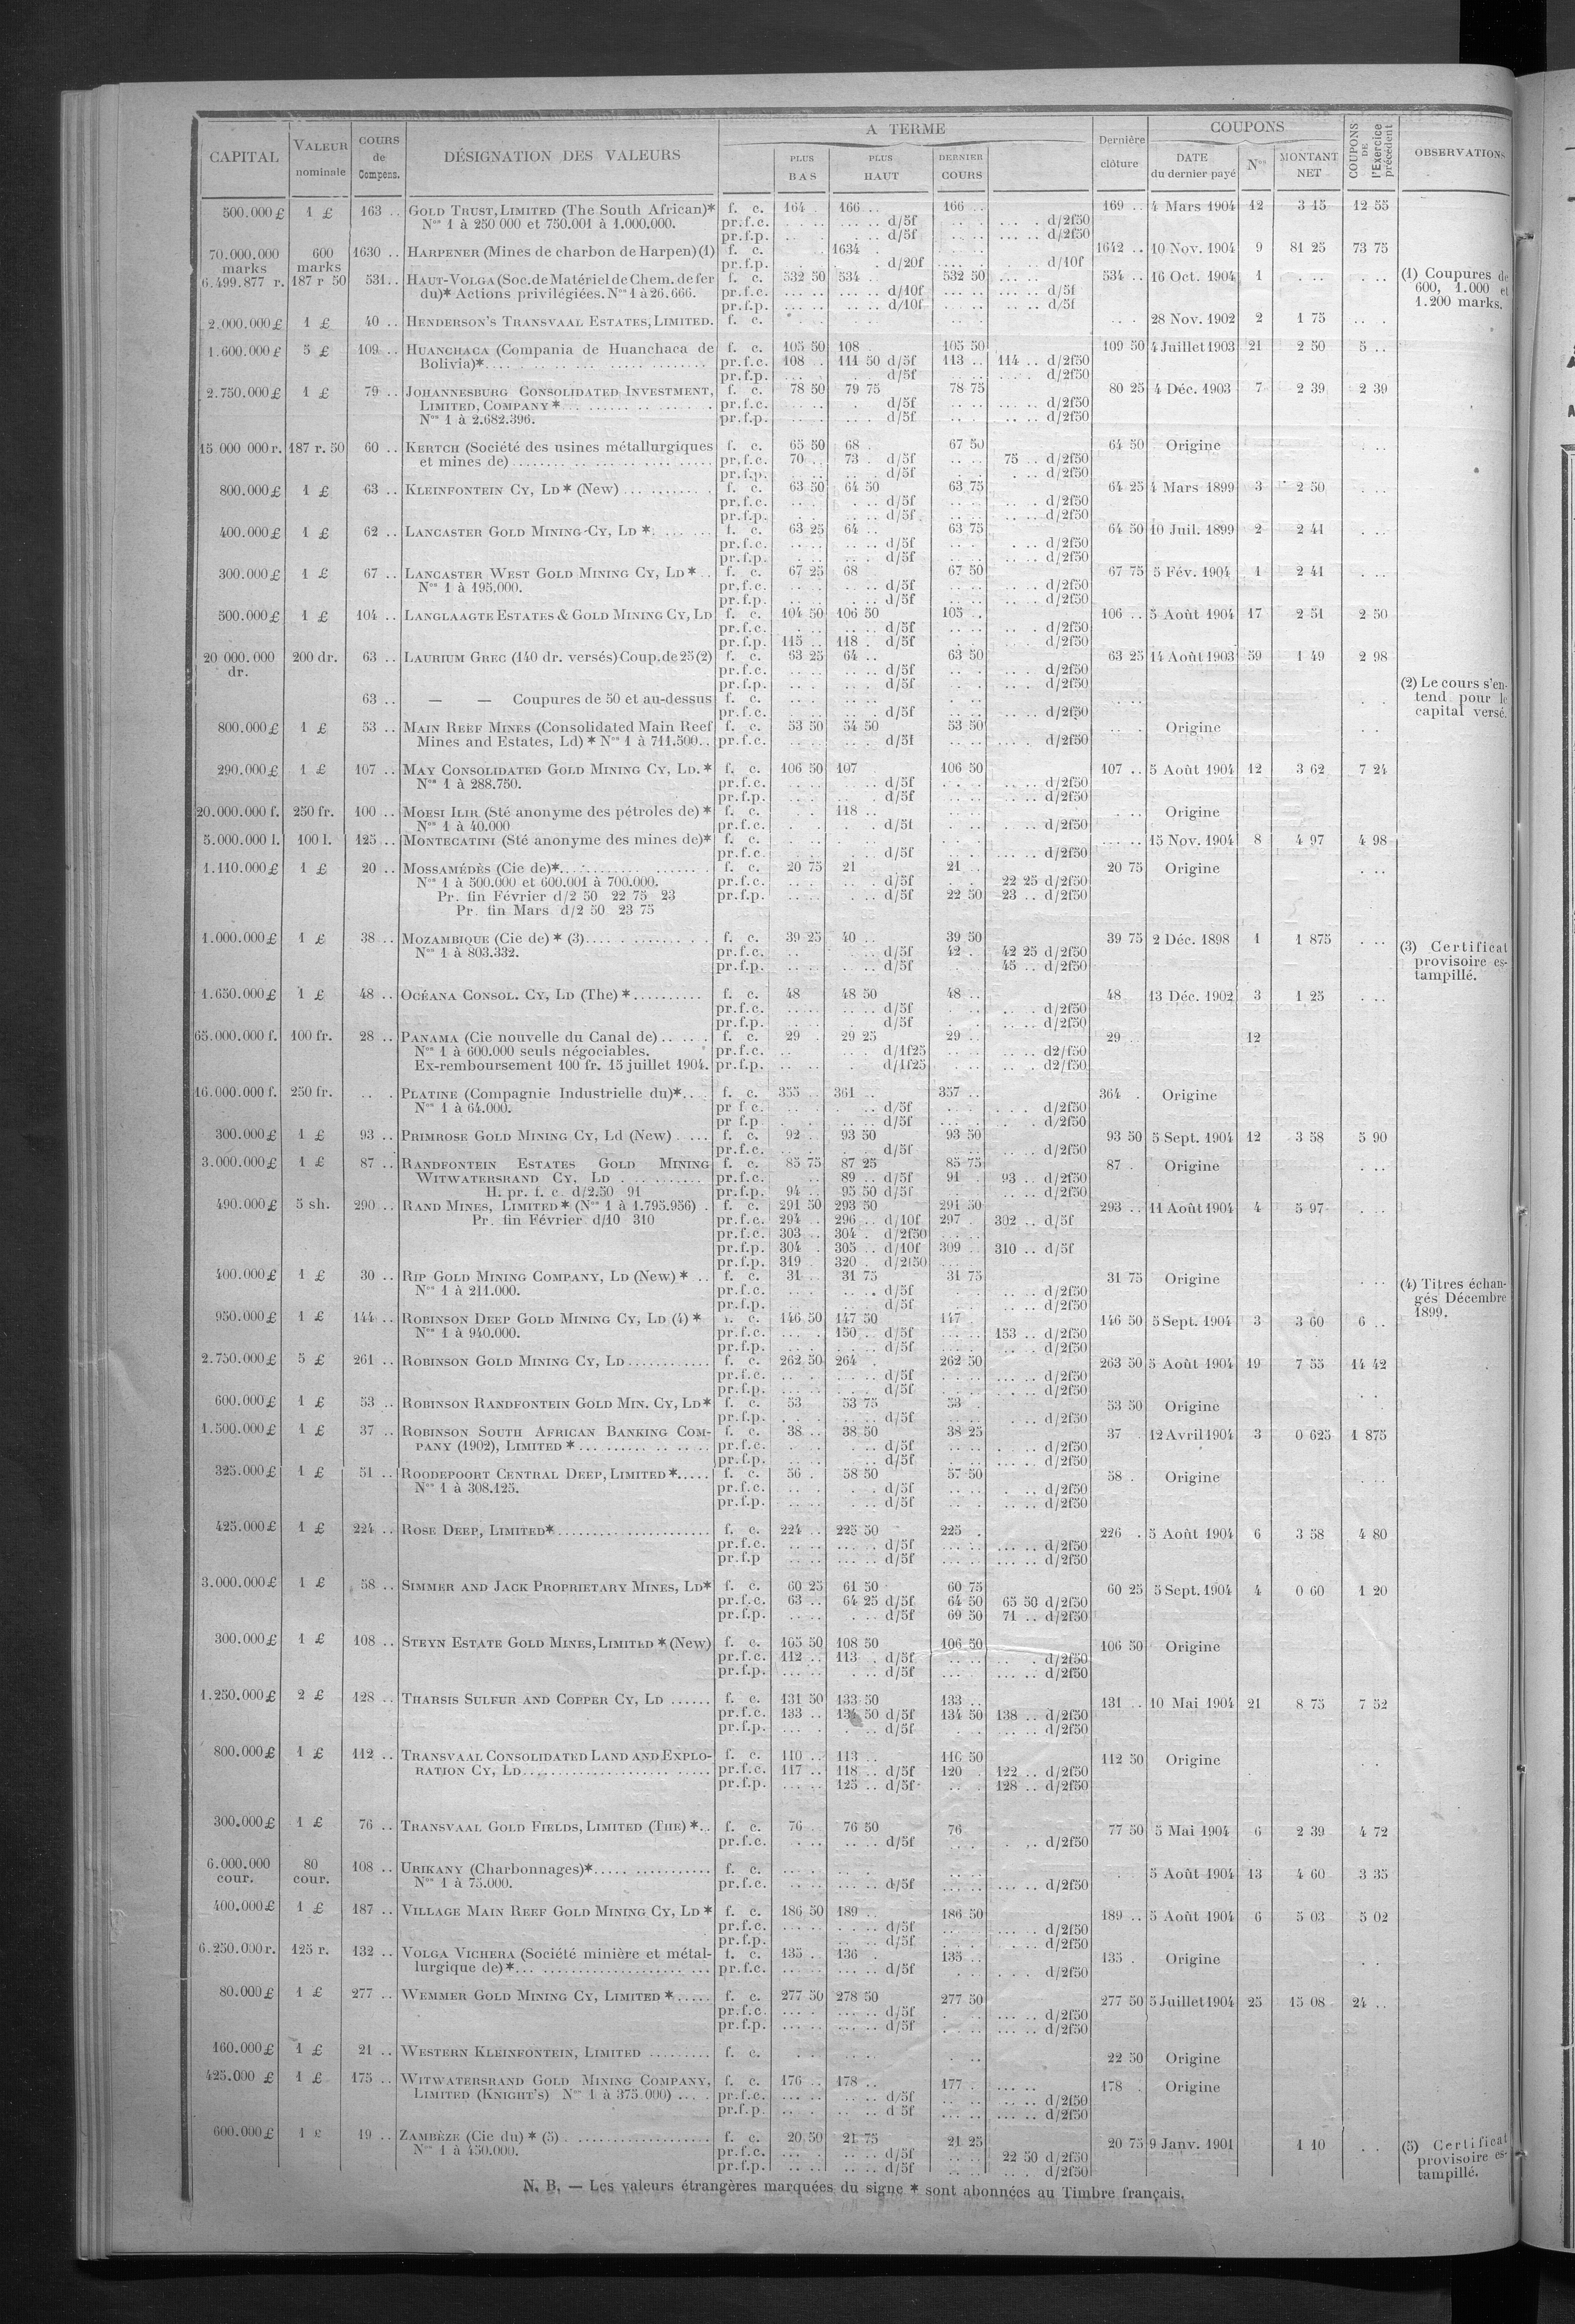 CAPITAL | VALEUR nominale | COURS de Compens. | DÉSIGNATION DES VALEURS | A TERME | PLUS BAS | PLUS HAUT | DERNIER COURS | Dernière clôture | COUPONS | DATE du dernier payé | Nos | MONTANT NET | COUPONS DE l'Exercice précédent | OBSERVATIONS
500.000 £ | 1 £ | 163 .. | GOLD TRUST, LIMITED (The South African)* | f. c. | 164 . | 166 .. | 166 .. | 169 .. | 4 Mars 1904 | 12 | 3 15 | 12 55
Nos 1 à 250 000 et 750.001 à 1.000.000. | pr.f.c. | d/5f | d/2f50
pr.f.p. | d/5f | d/2f50
70.000.000 marks | 600 marks | 1630 .. | HARPENER (Mines de charbon de Harpen) (1) | f. c. | 1634 . | 1642 .. | 10 Nov. 1904 | 9 | 81 25 | 73 75
pr.f.p. | d/20f | d/10f
6.499.877 r. | 187 r 50 | 531.. | HAUT-VOLGA (Soc. de Matériel de Chem. de fer | f. c. | 532 50 | 534 . | 532 50 | 534 .. | 16 Oct. 1904 | 1 | (1) Coupures de
du)* Actions privilégiées. Nos 1 à 26.666. | pr.f.c. | d/10f | d/5f | 600, 1.000 et
pr.f.p. | d/10f | d/5f | 1.200 marks.
2.000.000 £ | 1 £ | 40 .. | HENDERSON'S TRANSVAAL ESTATES, LIMITED. | f. c. | 28 Nov. 1902 | 2 | 1 75
1.600.000 £ | 5 £ | 109 .. | HUANCHACA (Compania de Huanchaca de | f. c. | 105 50 | 108 . | 105 50 | 109 50 | 4 Juillet 1903 | 21 | 2 50 | 5 ..
Bolivia)* | pr.f.c. | 108 .. | 111 50 d/5f | 113 .. | 114 .. d/2f50
pr.f.p. | d/5f | d/2f50
2.750.000 £ | 1 £ | 79 .. | JOHANNESBURG CONSOLIDATED INVESTMENT, | f. c. | 78 50 | 79 75 | 78 75 | 80 25 | 4 Déc. 1903 | 7 | 2 39 | 2 39
LIMITED, COMPANY * | pr.f.c. | d/5f | d/2f50
Nos 1 à 2.682.396. | pr.f.p. | d/5f | d/2f50
15 000 000 r. | 187 r. 50 | 60 .. | KERTCH (Société des usines métallurgiques | f. c. | 65 50 | 68 . | 67 50 | 64 50 | Origine
et mines de) | pr.f.c. | 70 .. | 73 . d/5f | 75 .. d/2f50
pr.f.p. | d/5f | d/2f50
800.000 £ | 1 £ | 63 .. | KLEINFONTEIN CY, LD * (New) | f. c. | 63 50 | 64 50 | 63 75 | 64 25 | 4 Mars 1899 | 3 | 2 50
pr.f.c. | d/5f | d/2f50
pr.f.p. | d/5f | d/2f50
400.000 £ | 1 £ | 62 .. | LANCASTER GOLD MINING CY, LD * | f. c. | 63 25 | 64 .. | 63 75 | 64 50 | 10 Juil. 1899 | 2 | 2 41
pr.f.c. | d/5f | d/2f50
pr.f.p. | d/5f | d/2f50
300.000 £ | 1 £ | 67 .. | LANCASTER WEST GOLD MINING CY, LD * | f. c. | 67 25 | 68 | 67 50 | 67 75 | 5 Fév. 1904 | 1 | 2 41
Nos 1 à 195.000. | pr.f.c. | d/5f | d/2f50
pr.f.p. | d/5f | d/2f50
500.000 £ | 1 £ | 104 .. | LANGLAAGTE ESTATES & GOLD MINING CY, LD | f. c. | 104 50 | 106 50 | 105 .. | 106 .. | 5 Août 1904 | 17 | 2 51 | 2 50
pr.f.c. | d/5f | d/2f50
pr.f.p. | 115 .. | 118 . d/5f | d/2f50
20 000.000 dr. | 200 dr. | 63 .. | LAURIUM GREC (140 dr. versés) Coup. de 25 (2) | f. c. | 63 25 | 64 .. | 63 50 | 63 25 | 14 Août 1903 | 59 | 1 49 | 2 98
pr.f.c. | d/5f | d/2f50
pr.f.p. | d/5f | d/2f50 | (2) Le cours s'en-
63 .. | — — Coupures de 50 et au-dessus | f. c. | tend pour le
pr.f.c. | d/5f | d/2f50 | capital versé.
800.000 £ | 1 £ | 53 .. | MAIN REEF MINES (Consolidated Main Reef | f. c. | 53 50 | 54 50 | 53 50 | Origine
Mines and Estates, Ld) * Nos 1 à 711.500.. | pr.f.c. | d/5f | d/2f50
290.000 £ | 1 £ | 107 .. | MAY CONSOLIDATED GOLD MINING CY, LD. * | f. c. | 106 50 | 107 | 106 50 | 107 .. | 5 Août 1904 | 12 | 3 62 | 7 24
Nos 1 à 288.750. | pr.f.c. | d/5f | d/2f50
pr.f.p. | d/5f | d/2f50
20.000.000 f. | 250 fr. | 100 .. | MOESI ILIR (Sté anonyme des pétroles de) * | f. c. | 118 .. | Origine
Nos 1 à 40.000 | pr.f.c. | d/5f | d/2f50
5.000.000 l. | 100 l. | 125 .. | MONTECATINI (Sté anonyme des mines de)* | f. c. | 15 Nov. 1904 | 8 | 4 97 | 4 98
pr.f.c. | d/5f | d/2f50
1.110.000 £ | 1 £ | 20 .. | MOSSAMÉDÈS (Cie de)* | f. c. | 20 75 | 21 | 21 .. | 20 75 | Origine
Nos 1 à 500.000 et 600.001 à 700.000. | pr.f.c. | d/5f | 22 25 d/2f50
Pr. fin Février d/2 50 22 75 23 | pr.f.p. | d/5f | 22 50 | 23 .. d/2f50
Pr. fin Mars d/2 50 23 75
1.000.000 £ | 1 £ | 38 .. | MOZAMBIQUE (Cie de) * (3) | f. c. | 39 25 | 40 .. | 39 50 | 39 75 | 2 Déc. 1898 | 1 | 1 875 | (3) Certificat
Nos 1 à 803.332. | pr.f.c. | d/5f | 42 . | 42 25 d/2f50 | provisoire es-
pr.f.p. | d/5f | 45 .. d/2f50 | tampillé.
1.650.000 £ | 1 £ | 48 .. | OCÉANA CONSOL. CY, LD (The) * | f. c. | 48 | 48 50 | 48 .. | 48 | 13 Déc. 1902 | 3 | 1 25
pr.f.c. | d/5f | d/2f50
pr.f.p. | d/5f | d/2f50
65.000.000 f. | 100 fr. | 28 .. | PANAMA (Cie nouvelle du Canal de) | f. c. | 29 . | 29 25 | 29 .. | 29 .. | 12
Nos 1 à 600.000 seuls négociables. | pr.f.c. | d/1f25 | d2/f50
Ex-remboursement 100 fr. 15 juillet 1904. | pr.f.p. | d/1f25 | d2/f50
16.000.000 f. | 250 fr. | PLATINE (Compagnie Industrielle du)* | f. c. | 355 .. | 361 .. | 357 .. | 364 . | Origine
Nos 1 à 64.000. | pr f c. | d/5f | d/2f50
pr f.p | d/5f | d/2f50
300.000 £ | 1 £ | 93 .. | PRIMROSE GOLD MINING CY, Ld (New) | f. c. | 92 .. | 93 50 | 93 50 | 93 50 | 5 Sept. 1904 | 12 | 3 58 | 5 90
pr.f.c. | d/5f | d/2f50
3.000.000 £ | 1 £ | 87 .. | RANDFONTEIN ESTATES GOLD MINING | f. c. | 85 75 | 87 25 | 85 75 | 87 . | Origine
WITWATERSRAND CY, LD | pr.f.c. | 89 .. d/5f | 91 . | 93 .. d/2f50
H. pr. f. c. d/2.50 91 | pr.f.p. | 94 .. | 95 50 d/5f | d/2f50
490.000 £ | 5 sh. | 290 .. | RAND MINES, LIMITED * (Nos 1 à 1.795.956) . | f. c. | 291 50 | 293 50 | 291 50 | 293 .. | 11 Août 1904 | 4 | 5 97
Pr. fin Février d/10 310 | pr.f.c. | 294 .. | 296 .. d/10f | 297 . | 302 .. d/5f
pr.f.c. | 303 .. | 304 . d/2f50
pr.f.p. | 304 . | 305 .. d/10f | 309 .. | 310 .. d/5f
pr.f.p. | 319 . | 320 . d/2f50
400.000 £ | 1 £ | 30 .. | RIP GOLD MINING COMPANY, LD (New) * | f. c. | 31 .. | 31 75 | 31 75 | 31 75 | Origine | (4) Titres échan-
Nos 1 à 211.000. | pr.f.c. | d/5f | d/2f50 | gés Décembre
pr.f.p. | d/5f | d/2f50 | 1899.
950.000 £ | 1 £ | 144 .. | ROBINSON DEEP GOLD MINING CY, LD (4) * | f. c. | 146 50 | 147 50 | 147 | 146 50 | 5 Sept. 1904 | 3 | 3 60 | 6 ..
Nos 1 à 940.000. | pr.f.c. | 150 .. d/5f | 153 .. d/2f50
pr.f.p. | d/5f | d/2f50
2.750.000 £ | 5 £ | 261 .. | ROBINSON GOLD MINING CY, LD | f. c. | 262 50 | 264 . | 262 50 | 263 50 | 5 Août 1904 | 19 | 7 55 | 14 42
pr.f.c. | d/5f | d/2f50
pr.f.p. | d/5f | d/2f50
600.000 £ | 1 £ | 53 .. | ROBINSON RANDFONTEIN GOLD MIN. CY, LD* | f. c. | 53 | 53 75 | 53 . | 53 50 | Origine
pr.f.p. | d/5f | d/2f50
1.500.000 £ | 1 £ | 37 .. | ROBINSON SOUTH AFRICAN BANKING COM- | f. c. | 38 .. | 38 50 | 38 25 | 37 . | 12 Avril 1904 | 3 | 0 625 | 1 875
PANY (1902), LIMITED * | pr.f.c. | d/5f | d/2f50
pr.f.p. | d/5f | d/2f50
325.000 £ | 1 £ | 51 .. | ROODEPOORT CENTRAL DEEP, LIMITED * | f. c. | 56 . | 58 50 | 57 50 | 58 . | Origine
Nos 1 à 308.125. | pr.f.c. | d/5f | d/2f50
pr.f.p. | d/5f | d/2f50
425.000 £ | 1 £ | 224 .. | ROSE DEEP, LIMITED* | f. c. | 224 .. | 225 50 | 225 . | 226 . | 5 Août 1904 | 6 | 3 58 | 4 80
pr.f.c. | d/5f | d/2f50
pr.f.p | d/5f | d/2f50
3.000.000 £ | 1 £ | 58 .. | SIMMER AND JACK PROPRIETARY MINES, LD* | f. c. | 60 25 | 61 50 | 60 75 | 60 25 | 5 Sept. 1904 | 4 | 0 60 | 1 20
pr.f.c. | 63 .. | 64 25 d/5f | 64 50 | 65 50 d/2f50
pr.f.p. | d/5f | 69 50 | 71 .. d/2f50
300.000 £ | 1 £ | 108 .. | STEYN ESTATE GOLD MINES, LIMITED * (New) | f. c. | 105 50 | 108 50 | 106 50 | 106 50 | Origine
pr.f.c. | 112 .. | 113 . d/5f | d/2f50
pr.f.p. | d/5f | d/2f50
1.250.000 £ | 2 £ | 128 .. | THARSIS SULFUR AND COPPER CY, LD | f. c. | 131 50 | 133 50 | 133 .. | 131 .. | 10 Mai 1904 | 21 | 8 75 | 7 52
pr.f.c. | 133 .. | 134 50 d/5f | 134 50 | 138 .. d/2f50
pr.f.p. | d/5f | d/2f50
800.000 £ | 1 £ | 112 .. | TRANSVAAL CONSOLIDATED LAND AND EXPLO- | f. c. | 110 .. | 113 .. | 110 50 | 112 50 | Origine
RATION CY, LD | pr.f.c. | 117 .. | 118 .. d/5f | 120 . | 122 .. d/2f50
pr.f.p. | 125 .. d/5f | 128 .. d/2f50
300.000 £ | 1 £ | 76 .. | TRANSVAAL GOLD FIELDS, LIMITED (THE) * | f. c. | 76 . | 76 50 | 76 | 77 50 | 5 Mai 1904 | 6 | 2 39 | 4 72
pr.f.c. | d/5f | d/2f50
6.000.000 cour. | 80 cour. | 108 .. | URIKANY (Charbonnages)* | f. c. | 5 Août 1904 | 13 | 4 60 | 3 35
Nos 1 à 75.000. | pr.f.c. | d/5f | d/2f50
400.000 £ | 1 £ | 187 .. | VILLAGE MAIN REEF GOLD MINING CY, LD * | f. c. | 186 50 | 189 .. | 186 50 | 189 .. | 5 Août 1904 | 6 | 5 03 | 5 02
pr.f.c. | d/5f | d/2f50
pr.f.p. | d/5f | d/2f50
6.250.000 r. | 125 r. | 132 .. | VOLGA VICHERA (Société minière et métal- | f. c. | 135 . | 136 . | 135 .. | 135 . | Origine
lurgique de) * | pr.f.c. | d/5f | d/2f50
80.000 £ | 1 £ | 277 .. | WEMMER GOLD MINING CY, LIMITED * | f. c. | 277 50 | 278 50 | 277 50 | 277 50 | 5 Juillet 1904 | 25 | 15 08 | 24 ..
pr.f.c. | d/5f | d/2f50
pr.f.p. | d/5f | d/2f50
160.000 £ | 1 £ | 21 .. | WESTERN KLEINFONTEIN, LIMITED | f. c. | 22 50 | Origine
425.000 £ | 1 £ | 175 .. | WITWATERSRAND GOLD MINING COMPANY, | f. c. | 176 .. | 178 .. | 177 . | 178 . | Origine
LIMITED (KNIGHT'S) Nos 1 à 375.000) | pr.f.c. | d/5f | d/2f50
pr.f.p. | d 5f | d/2f50
600.000 £ | 1 £ | 19 .. | ZAMBÈZE (Cie du) * (5) | f. c. | 20 50 | 21 75 | 21 25 | 20 75 | 9 Janv. 1901 | 1 10 | (5) Certificat
Nos 1 à 450.000. | pr.f.c. | d/5f | 22 50 d/2f50 | provisoire es-
pr.f.p. | d/5f | d/2f50 | tampillé.
N. B. — Les valeurs étrangères marquées du signe * sont abonnées au Timbre français.